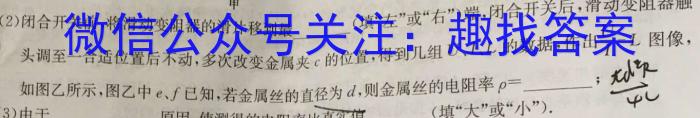 甲
(2)闭合开关前,将滑动变阻器的滑片移到最(填“左”或“右”)端,闭合开关后,滑动变阻器触
微信公众号关注:趣找答案
头调至一合适位置后不动,多次改变金属夹c的位置,得到几组的数据,作出L图像,
如图乙所示,图乙中e、f已知,若金属丝的直径为d,则金属丝的电阻率ρ=;
(3)由于原因,使测得的电阻率比真实值(填“大”或“小”).